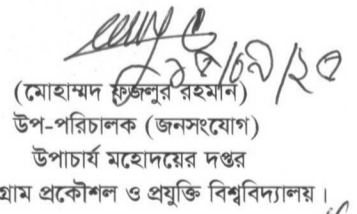 (মোহাম্মদ ফজলুর রহমান)
উপ-পরিচালক (জনসংযোগ)
উপাচার্য মহোদয়ের দপ্তর
গ্রাম প্রকৌশল ও প্রযুক্তি বিশ্ববিদ্যালয়।